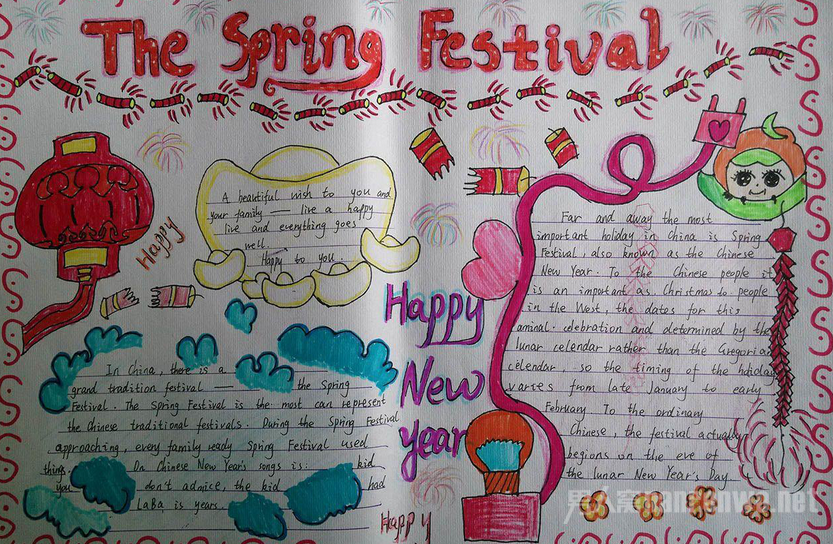 The Spring Festival
A beautiful wish to you and
your family — live a happy
live and everything goes
well.
Happy to you.
Happy
In China, there is a
grand tradition festival — the Spring
Festival. The Spring Festival is the most can represent
the Chinese traditional festivals. During the Spring Festival
approaching, every family ready Spring Festival used
things. On Chinese New Year's songs is: kid
you don't admice, the kid had
LaBa is years.
Happy
New
year
Happy
Far and away the most
important holiday in China is Spring
Festival, also known as the Chinese
New Year. To the Chinese people it
is an important as Christmas to people
in the West, the dates for this
aminal celebration and determined by the
lunar celendar rather than the Gregorian
celendar, so the timing of the holiday
varies from late January to early
February. To the ordinary
Chinese, the festival actually
begions on the eve of
the lunar New Year's Day